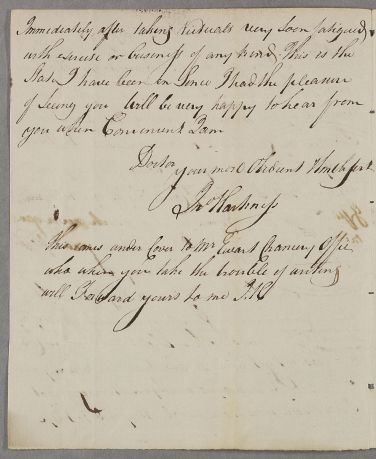 Immediately after taking victuals very soon fatigued
with exercise or business of any kind. This is the
State I have been in Since I had the pleasure
of Seeing you Will be very happy to hear from
you when Convenient I am
Doctor
your most Obedient Humb Sert
Jas Harkness
This comes under Cover to Mr Ewart Chancery Office
who when you take the trouble of writing
will Forward yours to me J H